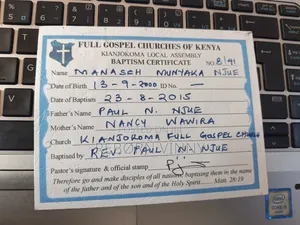 FULL GOSPEL CHURCHES OF KENYA
KIANJOKOMA LOCAL ASSEMBLY
BAPTISM CERTIFICATE NO 8/41
Name MANASEH MUNYAKA NJUE
Date of Birth 13-9-2000 ID No. —
Date of Baptism 23-8-2015
Father's Name PAUL N. NJUE
Mother's Name NANCY WAWIRA
Church KIANJOKOMA FULL GOSPEL CHURCH
Baptised by REV. PAUL N. NJUE
Pastor's signature & official stamp
Therefore go and make disciples of all nations baptising them in the name
of the father and of the son and of the Holy Spirit Matt 28:19